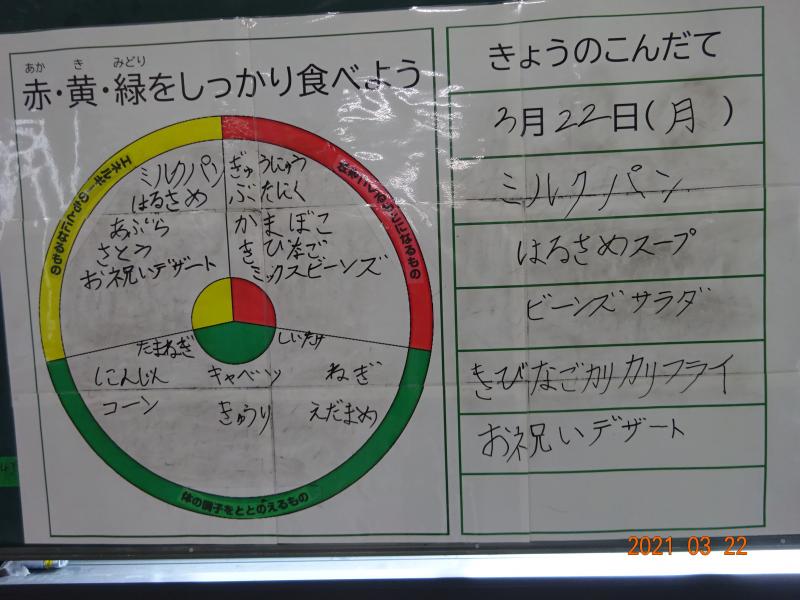 あか き みどり
赤・黄・緑をしっかり食べよう
エネルギーのもとになるもの
ミルクパン
はるさめ
あぶら
さとう
お祝いデザート
体をつくるもとになるもの
ぎゅうにゅう
ぶたにく
かまぼこ
きびなご
ミックスビーンズ
たまねぎ しいたけ
にんじん キャベツ ねぎ
コーン きゅうり えだまめ
体の調子をととのえるもの
きょうのこんだて
3月22日(月)
ミルクパン
はるさめスープ
ビーンズサラダ
きびなごカリカリフライ
お祝いデザート
2021 03 22